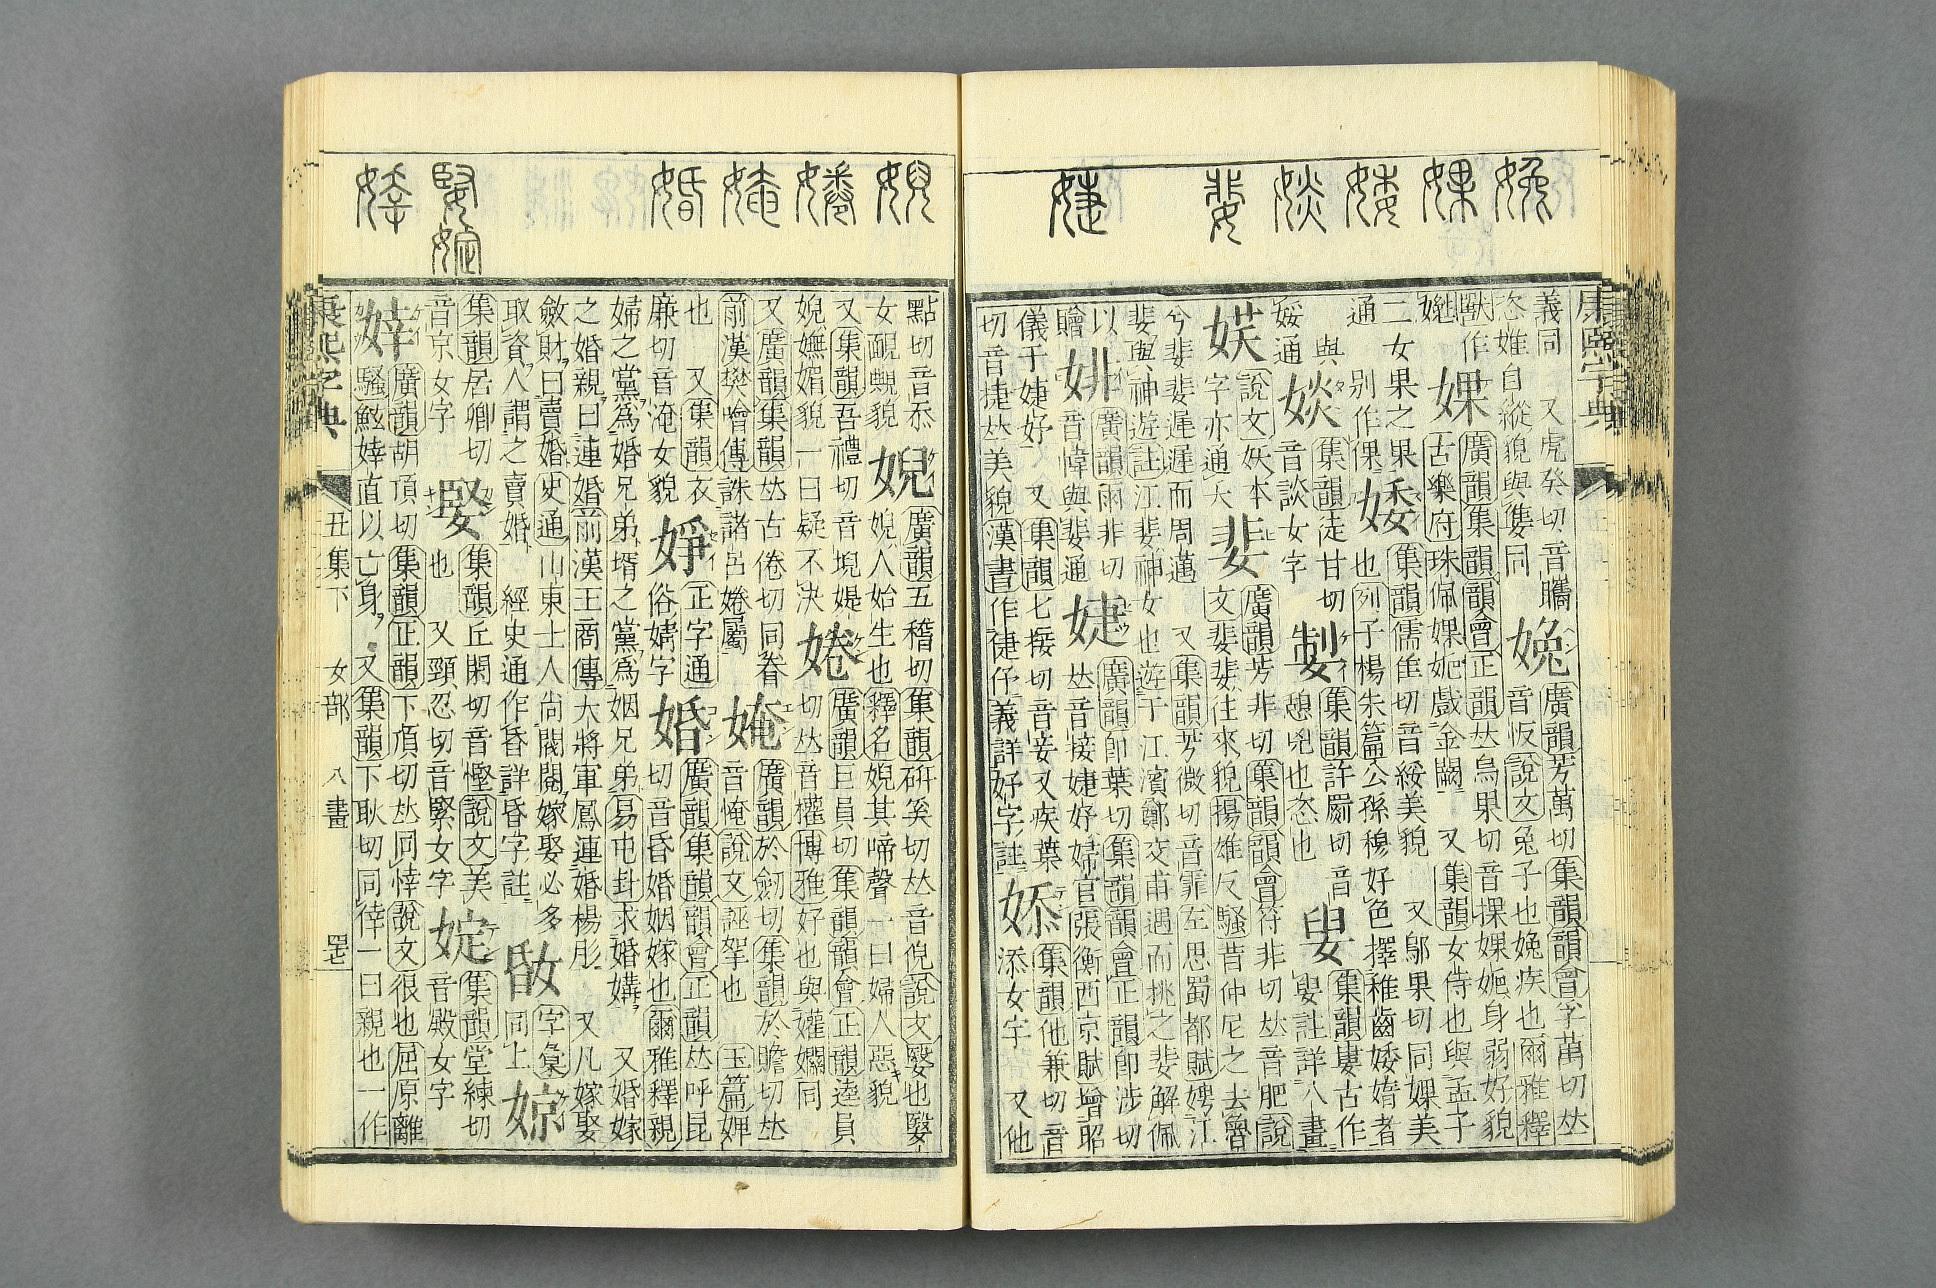 娩 婐 婑 婒 婓 婕
康熙字典
義同 又虎癸切音驨
恣雎自縱貌與孈同
娩 廣韻芳萬切集韻韻會孚萬切𠀤
音㤆說文兔子也娩疾也爾雅釋
獸作㜾
婐 廣韻集韻韻會正韻𠀤烏果切音捰婐妑身弱好貌
古樂府珠佩婐妑戲金闕 又集韻女侍也與孟子
二女果之果
通別作倮
婑 集韻儒隹切音綏美貌 又鄔果切同婐美
也列子楊朱篇公孫穆好色擇稚齒婑媠者
與綏通
婒 集韻徒甘切
音談女字
㛿 集韻許罽切音
憩兇也恣也
㛮 集韻婁古作
㛮註詳八畫
娱 說文妖本
字亦通大
婓 廣韻芳非切集韻韻會符非切𠀤音肥說
文婓婓往來貌揚雄反騷昔仲尼之去魯
兮婓婓遲遲而周邁 又集韻芳微切音霏左思蜀都賦娉江
婓與神遊註江婓神女也遊于江濱鄭交甫遇而挑之婓解佩
以贈
婔 廣韻雨非切
音幃與婓通
婕 廣韻卽葉切集韻韻會正韻卽涉切
𠀤音接婕妤婦官張衡西京賦增昭
儀于婕妤 又集韻七接切音妾又疾葉
切音捷𠀤美貌漢書作倢伃義詳好字註
婖 集韻他兼切音
添女字 又他
婗 婘 㛪 婚 婜 婝 婞
點切音忝
女靦䩄貌
婗 廣韻五稽切集韻硏奚切𠀤音倪說文嫛也嫛
婗人始生也釋名婗其啼聲一曰婦人惡貌
又集韻吾禮切音堄媞
婗嫵媚貌一曰疑不決
婘 廣韻巨員切集韻韻會正韻逵員
切𠀤音權博雅好也與孉嫻同
又廣韻集韻𠀤古倦切同眷
前漢樊噲傳誅諸呂婘屬
㛪 廣韻於劒切集韻於贍切𠀤
音俺說文誣挐也 玉篇婢
也 又集韻衣
廉切音淹女貌
婙 正字通
俗婧字
婚 廣韻集韻韻會正韻𠀤呼昆
切音昏婚姻嫁也爾雅釋親
婦之黨爲婚兄弟壻之黨爲姻兄弟易屯卦求婚媾 又婚嫁
之婚親曰連婚前漢王商傳大將軍鳳連婚楊肜 又凡嫁娶
斂財曰賣婚史通山東士人尙閥閱嫁娶必多
取資人謂之賣婚 經史通作昏詳昏字註
㛰 字彙
同上
婛 集韻居卿切
音京女字
婜 集韻丘閑切音慳說文美
也 又頸忍切音緊女字
婝 集韻堂練切
音殿女字
婞 廣韻胡頂切集韻正韻下頂切𠀤同悻說文很也屈原離
騷鮌婞直以亡身 又集韻下耿切同倖一曰親也一作
康熙字典 丑集下 女部 八畫